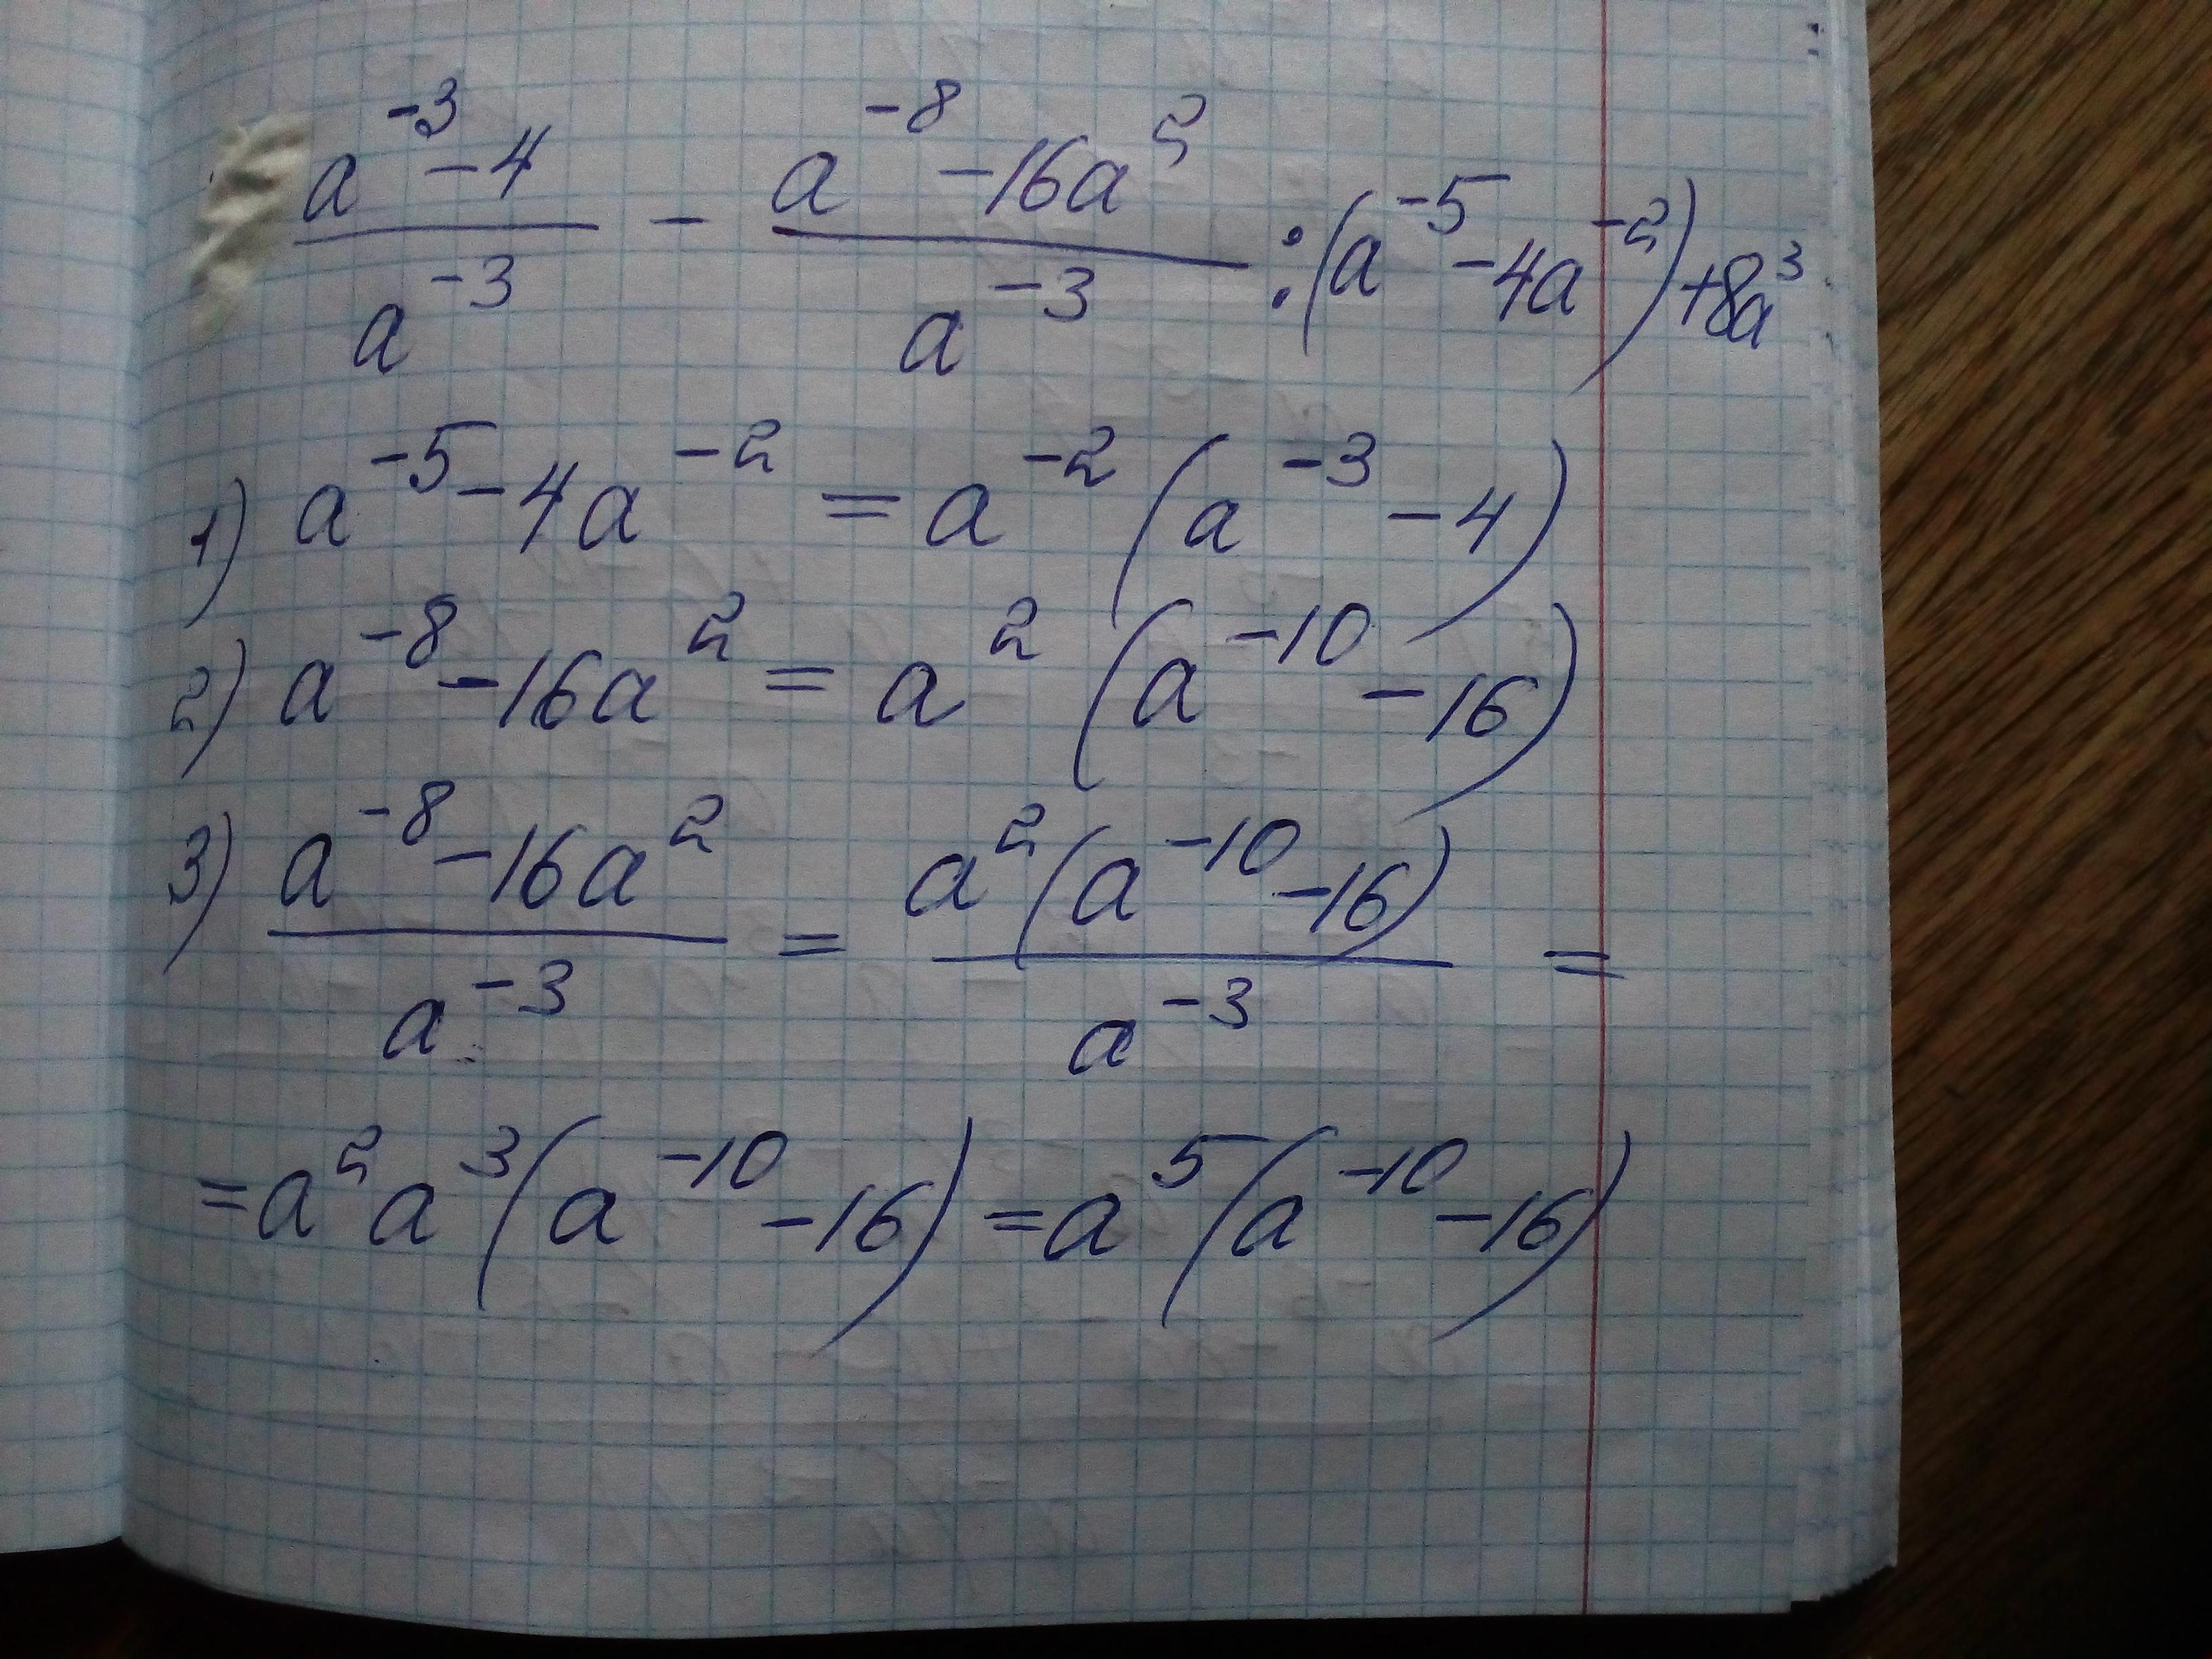 (a⁻³-4)/a⁻³ - (a⁻⁸-16a²)/a⁻³ : (a⁻⁵-4a⁻²)+8a³
1) a⁻⁵-4a⁻² = a⁻²(a⁻³-4)
2) a⁻⁸-16a² = a²(a⁻¹⁰-16)
3) (a⁻⁸-16a²)/a⁻³ = a²(a⁻¹⁰-16)/a⁻³ =
=a²a³(a⁻¹⁰-16)=a⁵(a⁻¹⁰-16)